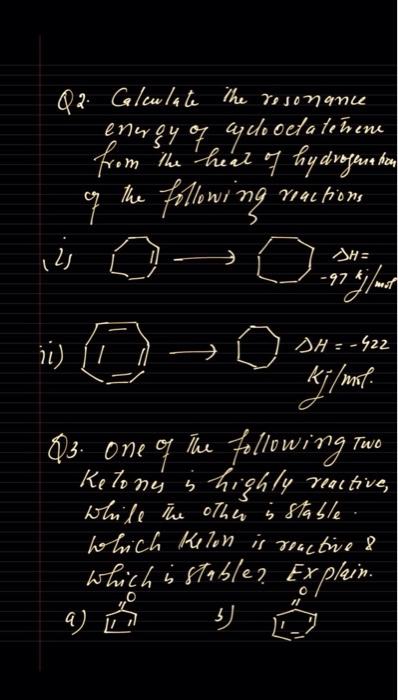 Q2. Calculate the resonance
energy of cyclooctatetrene
from the heat of hydrogenation
of the following reactions
i) → ΔH =
-97 kj/mol
ii) → ΔH = -422
Kj/mol.
Q3. One of the following Two
Ketones is highly reactive,
while the other is stable.
which Keton is reactive &
which is stable? Explain.
a) O b) O